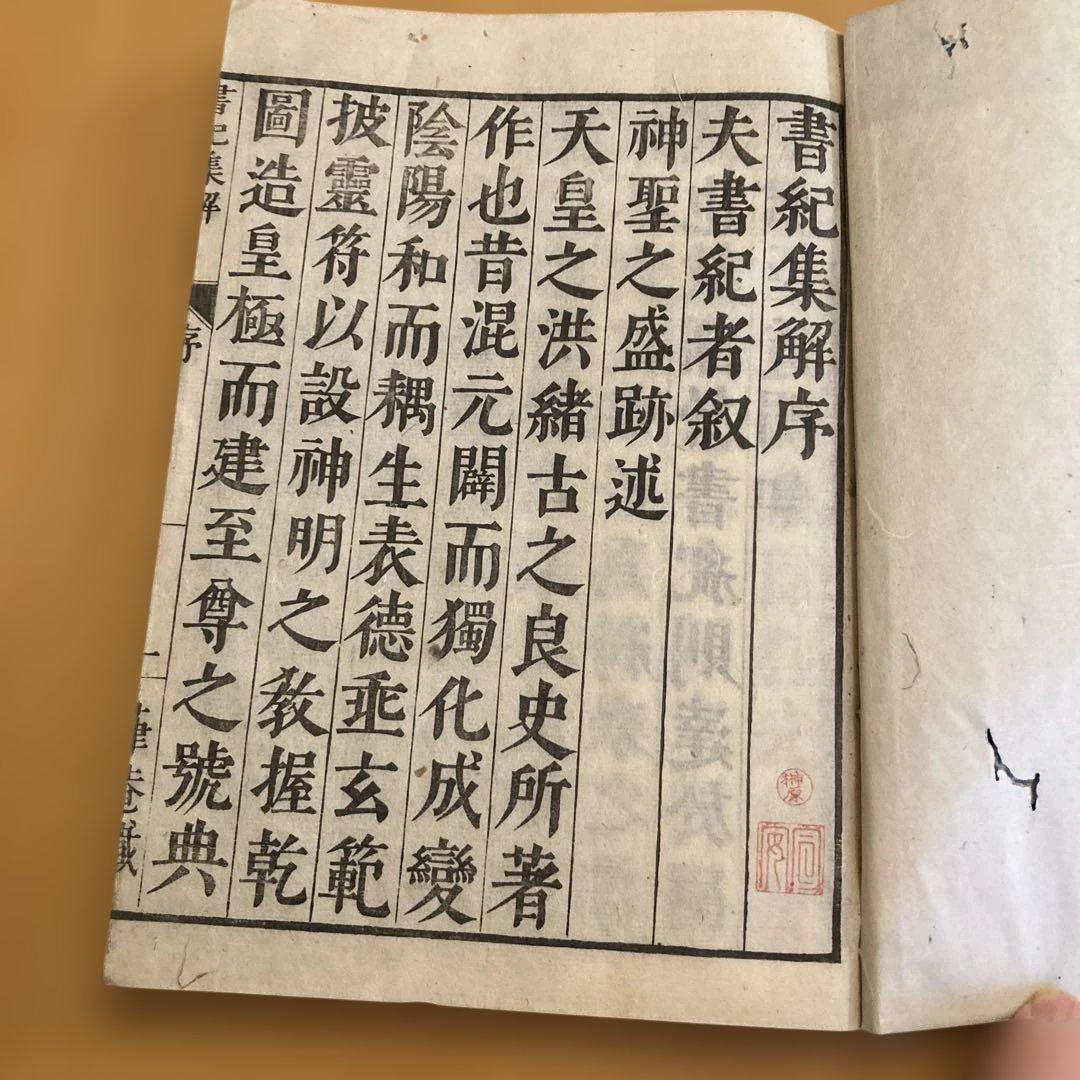 書紀集解序
夫書紀者叙
神聖之盛跡述
天皇之洪緒古之良史所著
作也昔混元闢而獨化成變
陰陽和而耦生表德垂玄範
披靈符以設神明之教握乾
圖造皇極而建至尊之號典
書紀集解
序
一
榊原